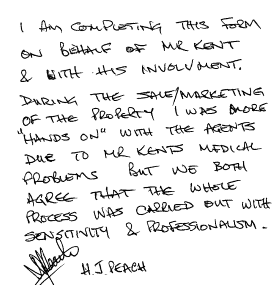 I AM COMPLETING THIS FORM
ON BEHALF OF MR KENT
& WITH HIS INVOLVMENT.
DURING THE SALE/MARKETING
OF THE PROPERTY I WAS MORE
"HANDS ON" WITH THE AGENTS
DUE TO MR KENTS MEDICAL
PROBLEMS BUT WE BOTH
AGREE THAT THE WHOLE
PROCESS WAS CARRIED OUT WITH
SENSITIVITY & PROFESSIONALISM.
H.J. PEACH